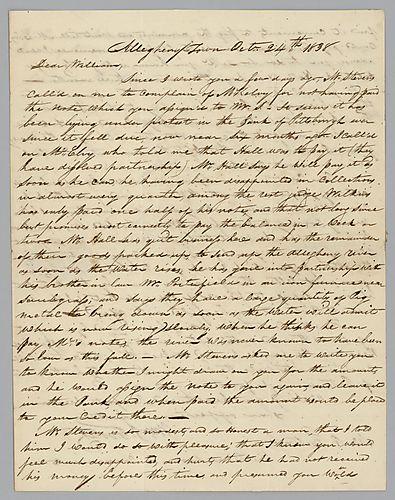 Allegheny Town Octr. 24th 1838
Dear William,
Since I wrote you a few days ago Mr. Stevens
Call'd on me to Complain of Mr. for not having paid
the Note, which you assign'd to Mr. S. It seems it has
been lying under protest in the Bank of Pittsburgh ever
since it fell due now near Six months ago. I Call'd
on who told me that Hall was to pay it (they
have partnership) Mr. Hall says he will pay it as
soon as he can, he having been disappointed in Collections
in almost every quarter among the rest Judge Wilkins
has only paid one half of his note, and that not long since
but promises most earnestly to pay the balance in a Week or
two. Mr. Hall has quit business here and has the remainder
of their goods packed up to send up the Allegheny river
as soon as the Water rises, he has gone into partnership with
his brother in law Mr. in an iron furnace near
and says they have a large quantity of Pig
metal to bring down as soon as the water will admit
which is now rising slowly, when he thinks he can
pay Mr. notes, the river was never known to have been
so low as this fall. — Mr. Stevens asked me to write you
to know whether I might draw on you for the amount,
and he would assign the note to you again, and leave it
in the Bank and when paid the amount would be placed
to your Credit there. —
Mr. Stevens is so modest, and so honest a man, that I told
him I would do so with pleasure; that I knew you would
feel much disappointed and hurt, that he had not received
his money before this time, and presumed you would